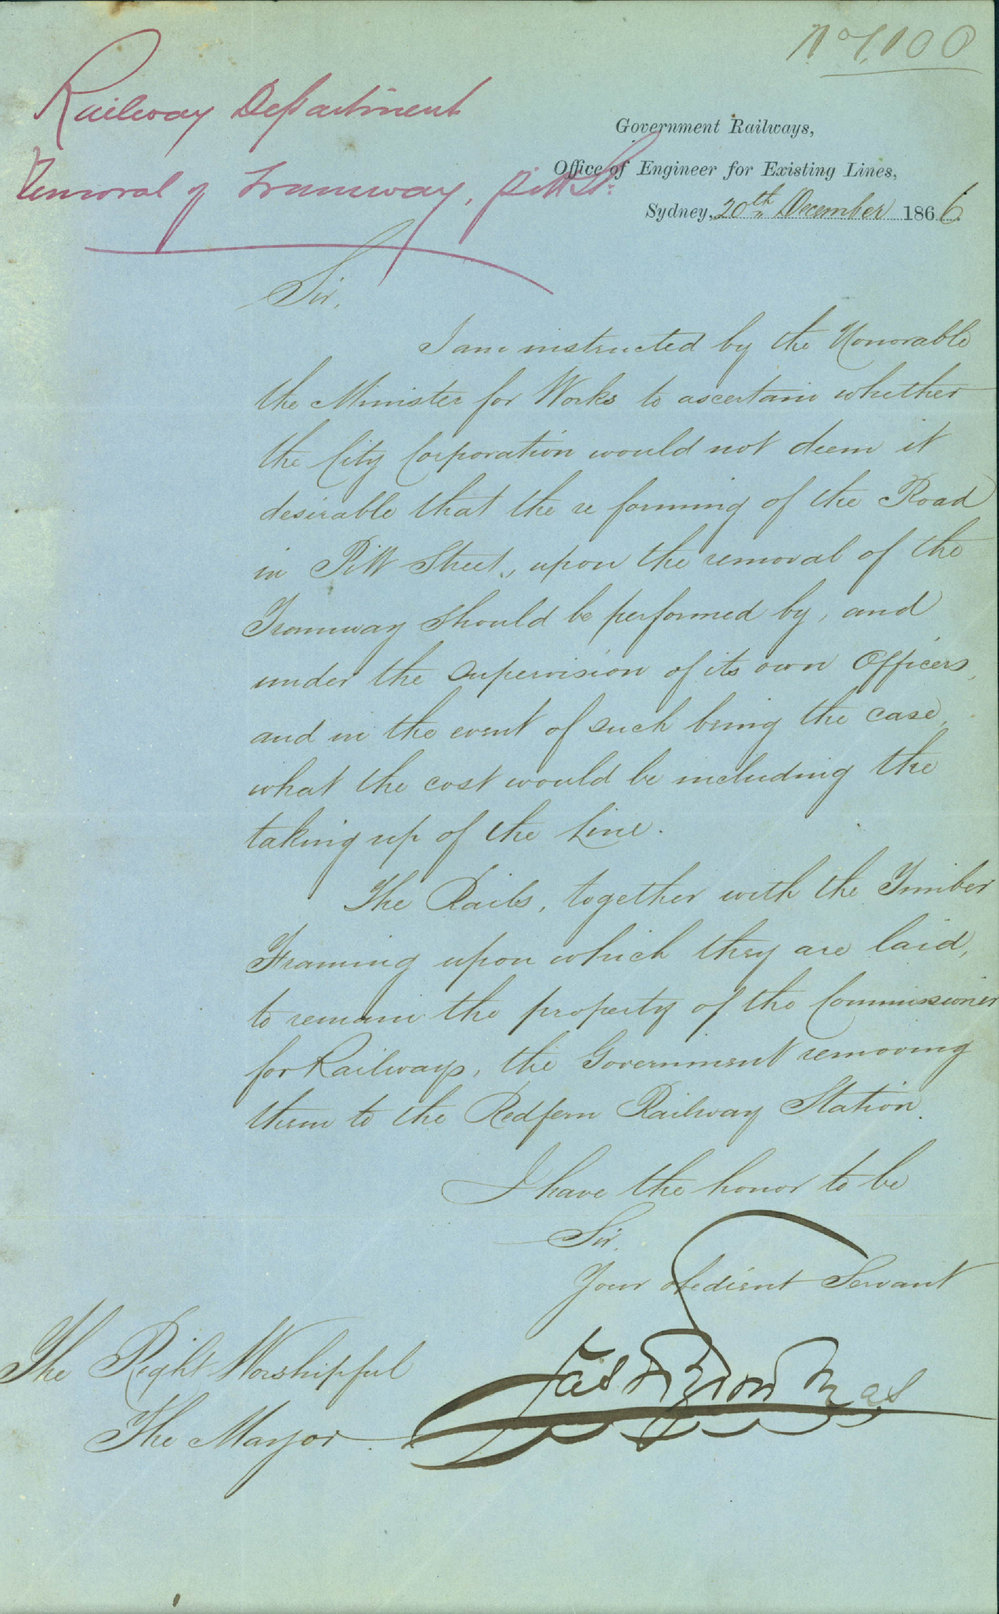 No 1,100
Railway Department
Removal of Tramway, Pitt St.
Government Railways,
Office of Engineer for Existing Lines,
Sydney, 20th December 1866.
Sir,
I am instructed by the Honorable
the Minister for Works to ascertain whether
the City Corporation would not deem it
desirable that the re forming of the Road
in Pitt Street, upon the removal of the
Tramway should be performed by, and
under the supervision of its own Officers,
and in the event of such being the case,
what the cost would be including the
taking up of the Line.
The Rails, together with the Timber
Framing upon which they are laid,
to remain the property of the Commissioner
for Railways, the Government removing
them to the Redfern Railway Station.
I have the honor to be
Sir,
Your obedient Servant
The Right Worshipful
The Mayor